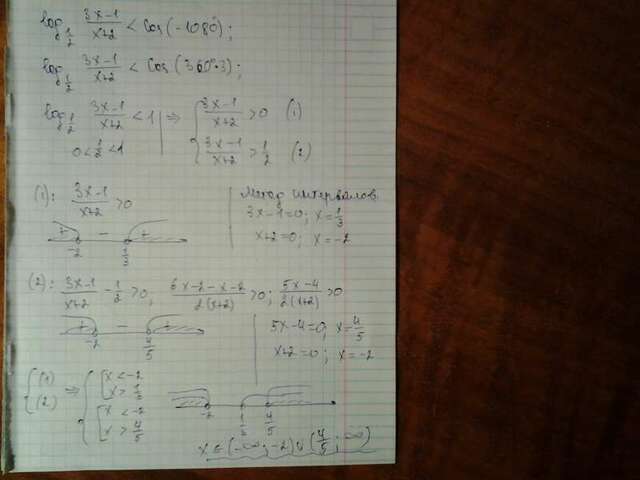 log_{1/2} (3x-1)/(x+2) < Cos(-1080°);
log_{1/2} (3x-1)/(x+2) < Cos(360°·3);
log_{1/2} (3x-1)/(x+2) < 1 | ⇒ { (3x-1)/(x+2) > 0 (1)
0 < 1/2 < 1 | { (3x-1)/(x+2) > 1/2 (2)
(1): (3x-1)/(x+2) > 0 | Метод интервалов
3x-1=0; x = 1/3
x+2=0; x = -2
+ - +
-2 1/3
(2): (3x-1)/(x+2) - 1/2 > 0; (6x-2-x-2)/(2(x+2)) > 0; (5x-4)/(2(x+2)) > 0
+ - +
-2 4/5
5x-4=0; x = 4/5
x+2=0; x = -2
{ (1) (2) ⇒ { [ x < -2
x > 1/3
[ x < -2
x > 4/5
-2 1/3 4/5
x ∈ (-∞; -2) ∪ (4/5; ∞)